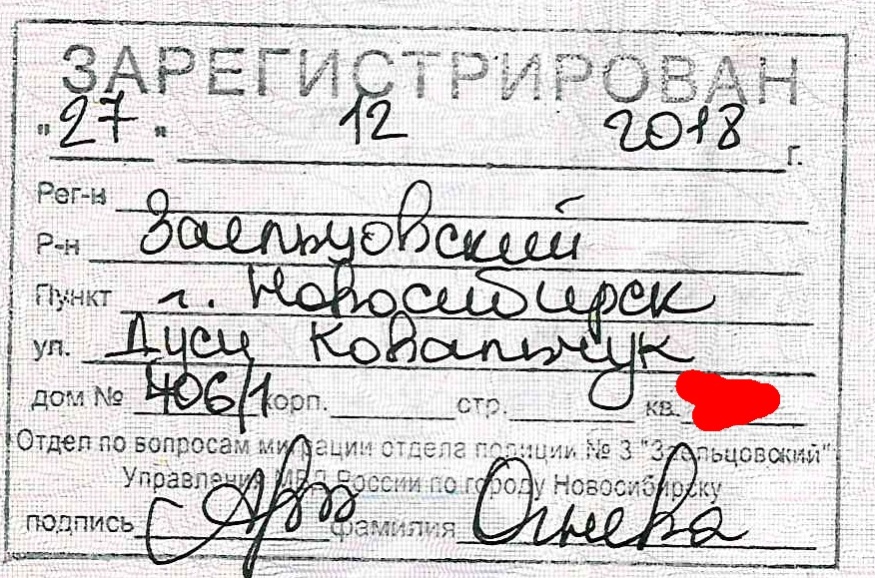 ЗАРЕГИСТРИРОВАН
"27" 12 2018 г.
Рег-н
Р-н Заельцовский
Пункт г. Новосибирск
ул. Дуси Ковальчук
дом № 406/1 корп. стр. кв.
Отдел по вопросам миграции отдела полиции № 3 "Заельцовский"
Управления МВД России по городу Новосибирску
подпись фамилия Огнева